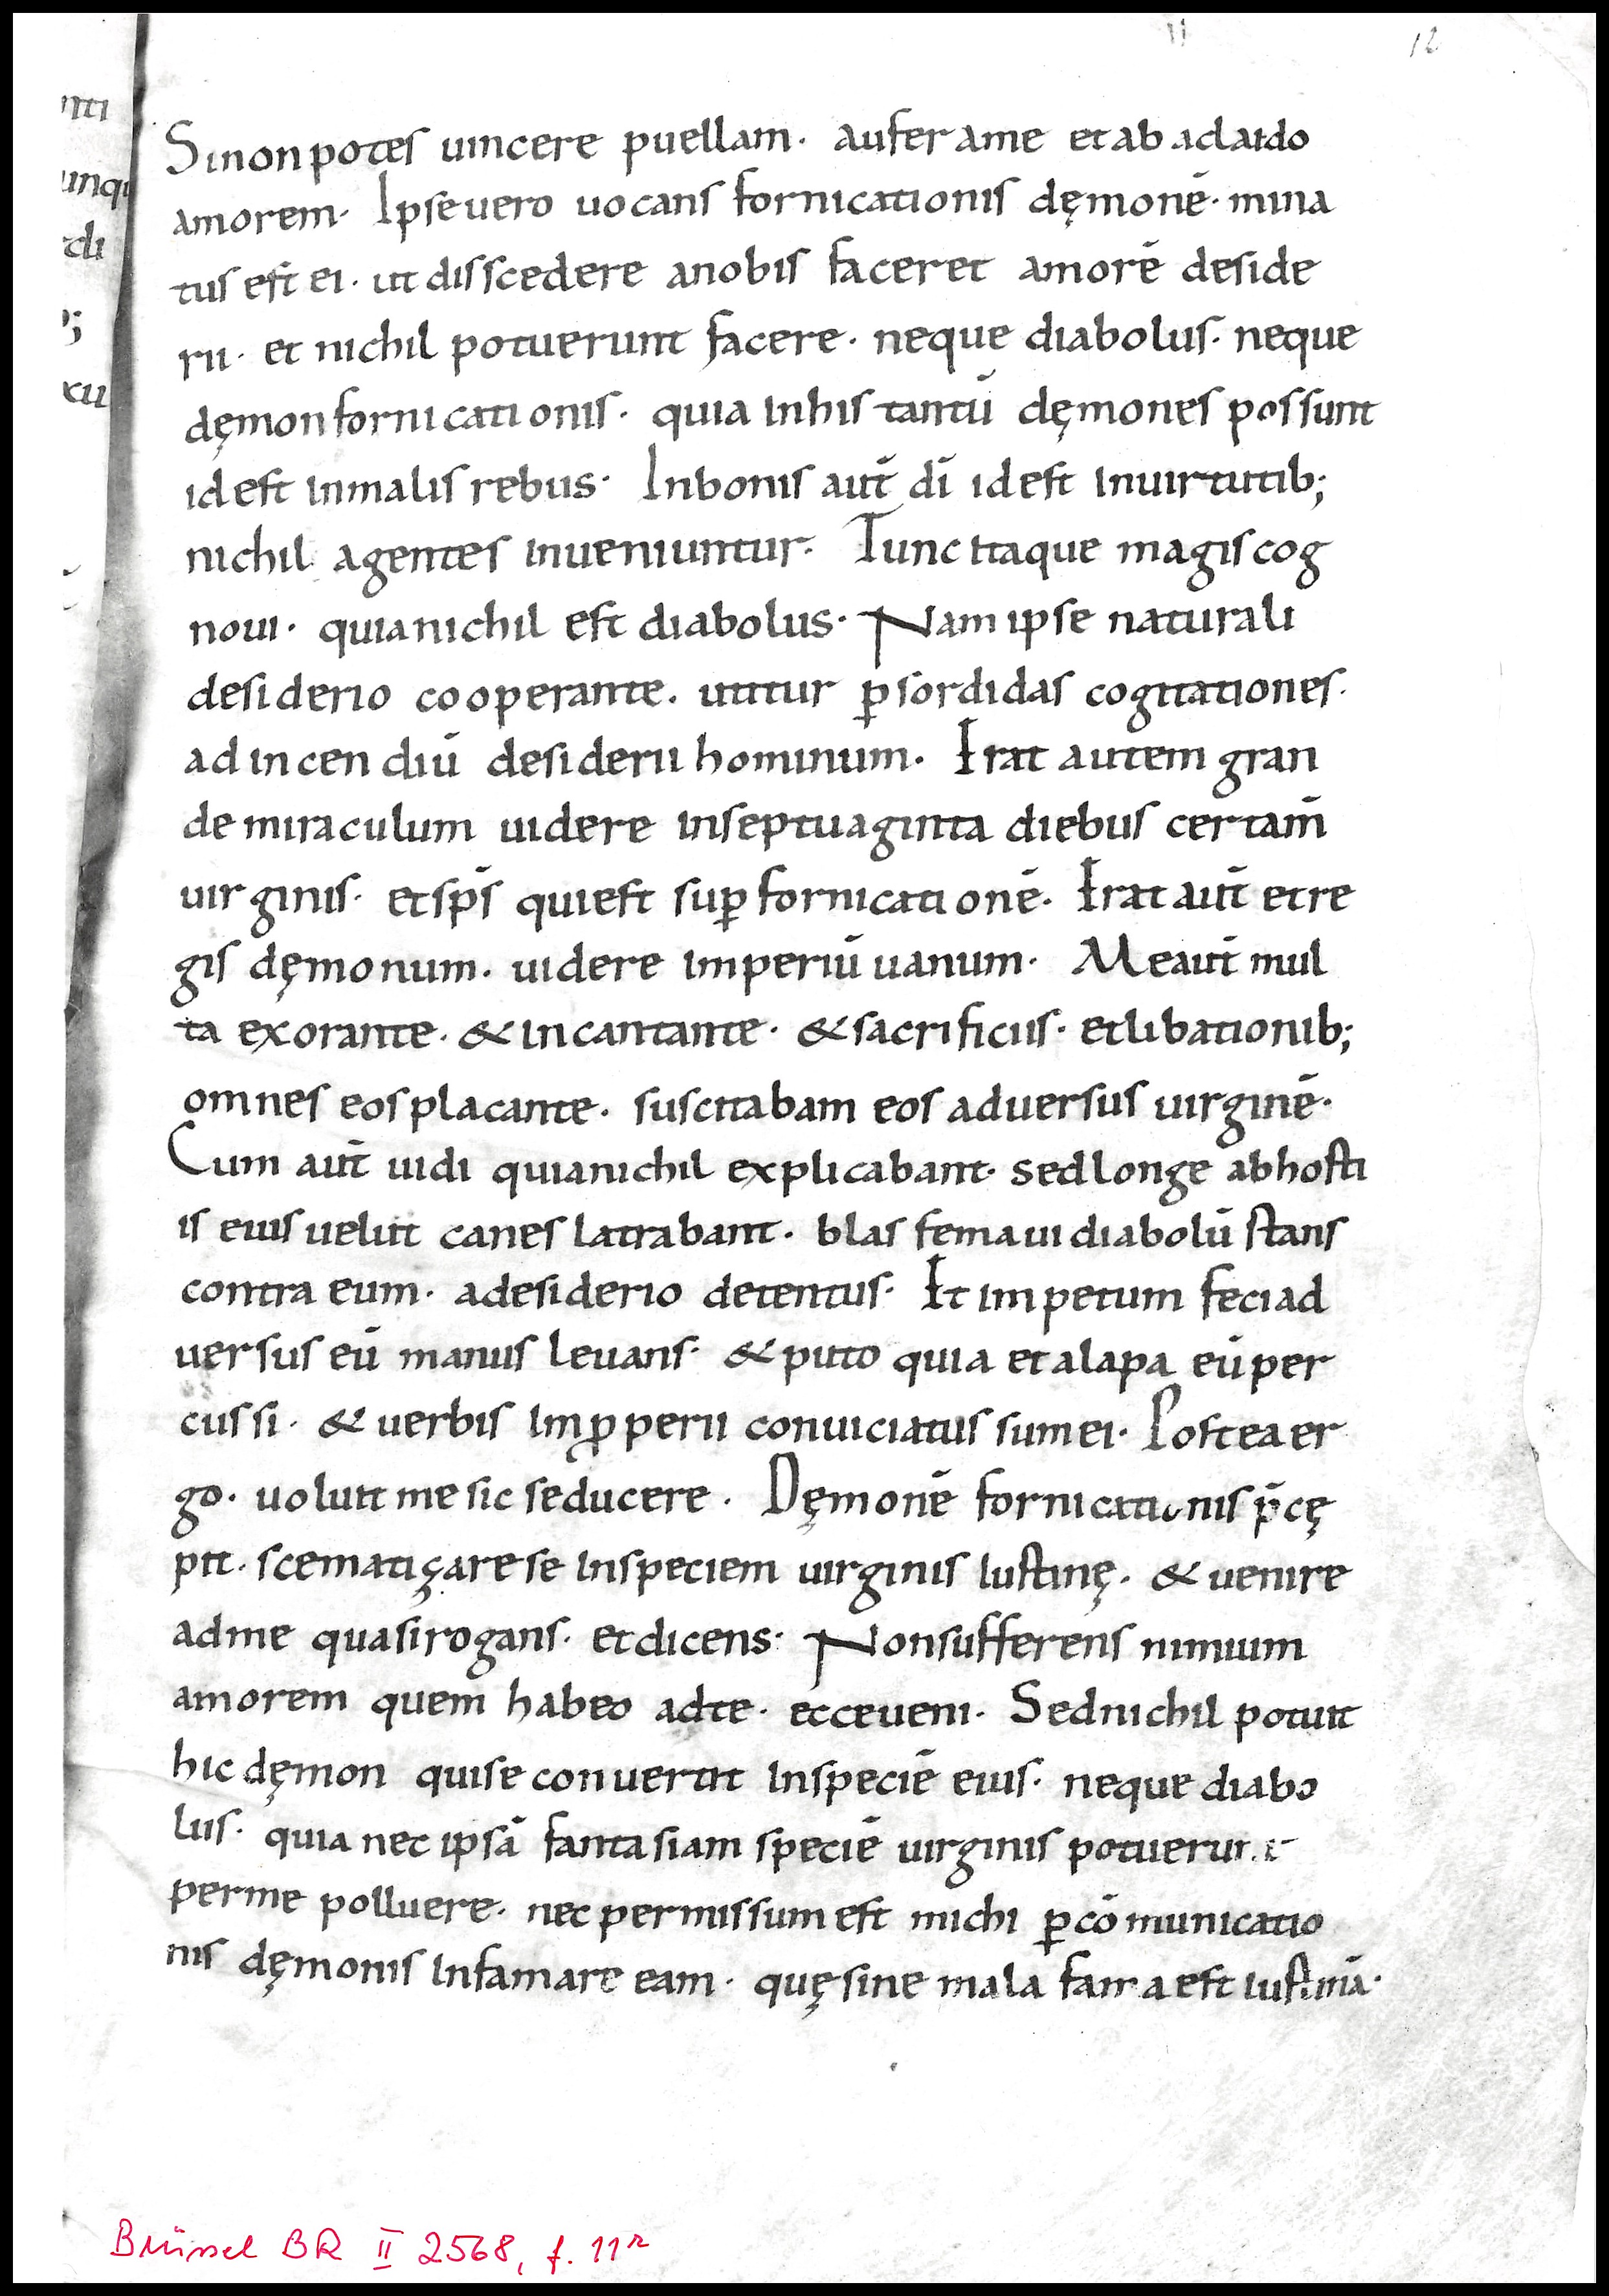 11
12
nti
unqu
rdi
;
xu
Sinonpotes uincere puellam· aufer ame et ab adaido
amorem· Ipse uero uocans fornicationis dęmonē· mina
tus est ei· ut disscedere anobis faceret amorē deside
rii· et nichil potuerunt facere· neque diabolus· neque
dęmon fornicationis· quia inhis tantū dęmones possunt
idest inmalis rebus· Inbonis aut̄ dī idest inuirtutib;
nichil agentes inueniuntur· Tunc itaque magis cog
noui· quia nichil est diabolus· Nam ipse naturali
desiderio cooperante· utitur ꝑ sordidas cogitationes·
ad incendiū desiderii hominum· Erat autem gran
de miraculum uidere inseptuaginta diebus certam̄
uirginis· et sp̄s qui est suꝑ fornicationē· Erat aut̄ et re
gis dęmonum· uidere imperiū uanum· Me aut̄ mul
ta exorante· & incantante· & sacrificiis· et libationib;
omnes eos placante· suscitabam eos aduersus uirginē·
Cum aut̄ uidi quia nichil explicabant· sed longe ab hosti
is eius uelut canes latrabant· blasfemaui diabolū stans
contra eum· adesiderio detentus· Et impetum feci ad
uersus eū manus leuans· & puto quia et alapa eū per
cussi· & uerbis imꝓperii conuiciatus sum ei· Postea er
go· uoluit me sic seducere· Dęmonē fornicationis p̄cę
pit· scematiçare se inspeciem uirginis Iustinę· & uenire
adme quasi rogans· et dicens· Non sufferens nimium
amorem quem habeo adte· ecce ueni· Sed nichil potuit
hic dęmon qui se conuertit inspeciē eius· neque diabo
lus· quia nec ipsā fantasiam speciē uirginis potuerunt
perme polluere· nec permissum est michi ꝑ cōmunicatio
nis dęmonis infamare eam· quę sine mala fama est iustinā·
Brüssel BR II 2568, f. 11r